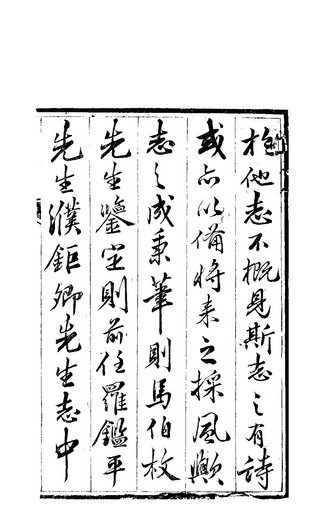 於他志不概見斯志之有詩
或亦以備將来之採風歟
志之成秉筆則馬伯枚
先生鑒定則前任羅鑑平
先生濮鉅卿先生志中